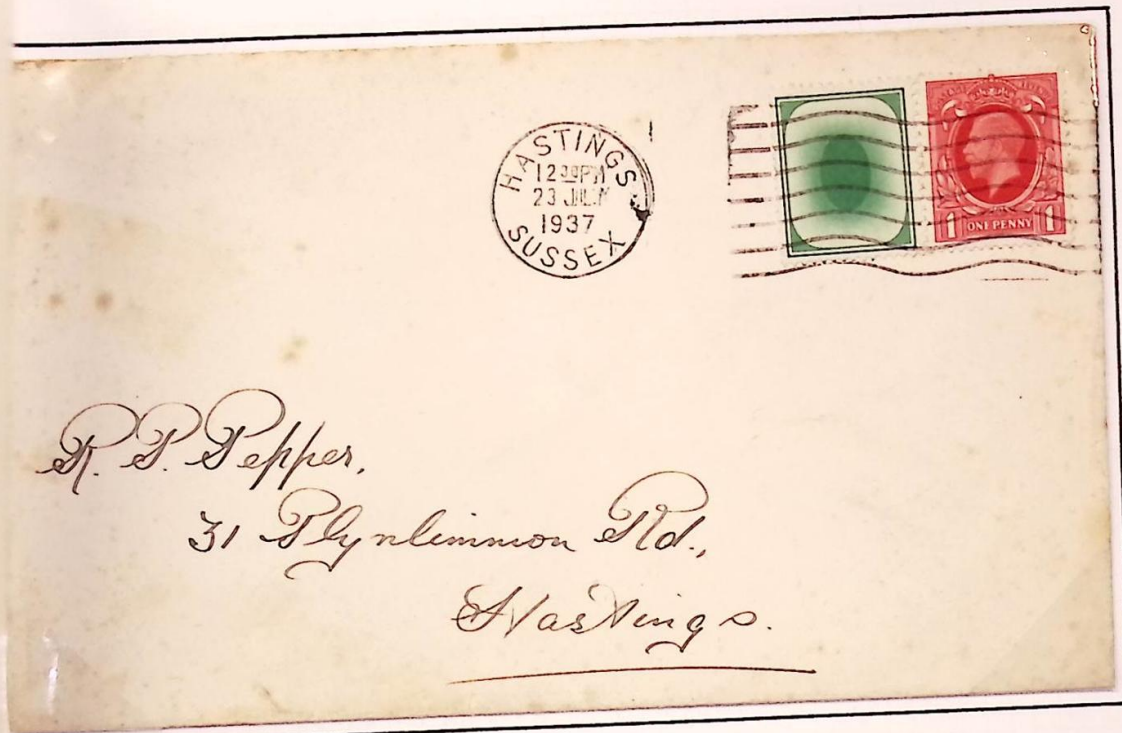 HASTINGS
12 PM
23 JLY
1937
SUSSEX
1 ONE PENNY 1
R. P. Pepper,
31 Plynlimmon Rd.,
Hastings.